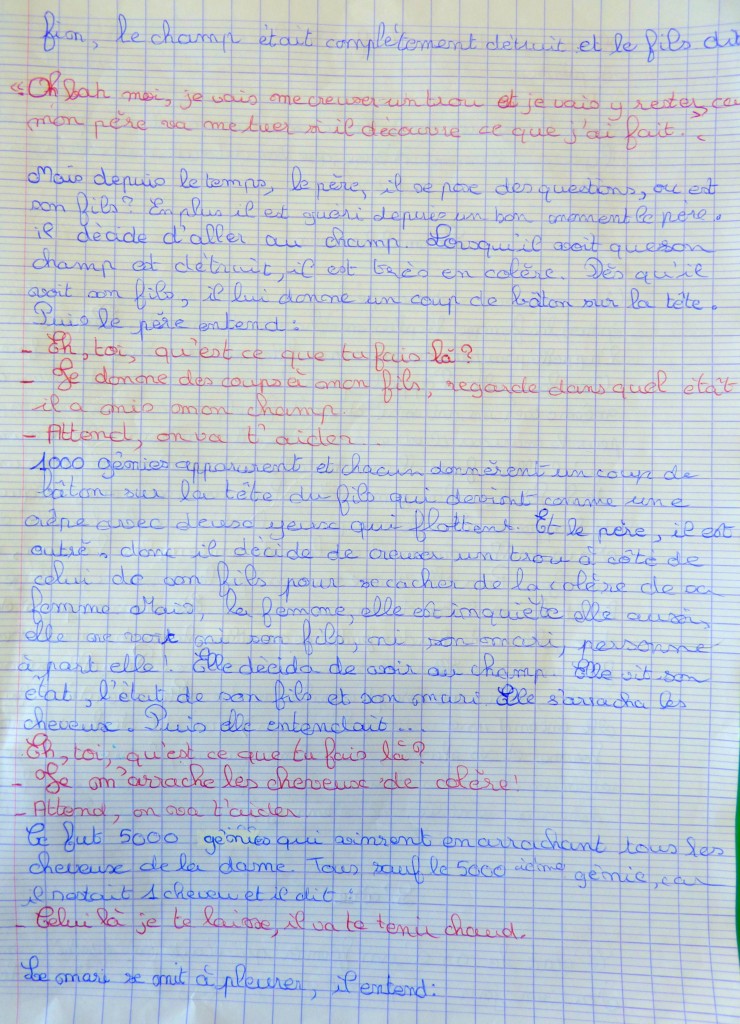 fion, le champ était complètement détruit et le fils dit
« Oh bah moi, je vais me creuser un trou et je vais y rester, car
mon père va me tuer si il découvre ce que j'ai fait. »
Mais depuis le temps, le père, il se pose des questions, ou est
son fils? En plus il est guéri depuis un bon moment le père.
il décide d'aller au champ. Lorsqu'il voit que son
champ est détruit, il est très en colère. Dès qu'il
voit son fils, il lui donne un coup de bâton sur la tête.
Puis le père entend:
- Eh, toi, qu'est ce que tu fais là?
- Je donne des coups à mon fils, regarde dans quel étât
il a mis mon champ.
- Attend, on va t'aider.
1000 génies apparurent et chacun donnèrent un coup de
bâton sur la tête du fils qui devient comme une
crêpe avec deux yeux qui flottent. Et le père, il est
outré. donc il décide de creuser un trou à côté de
celui de son fils pour se cacher de la colère de sa
femme Mais, la femme, elle est inquiète elle aussi,
elle ne voit ni son fils, ni son mari, personne
à part elle! Elle décida de voir au champ. Elle vit son
état, l'état de son fils et son mari Elle s'arracha les
cheveux. Puis elle entendait...
Eh, toi, qu'est ce que tu fais là?
- Je m'arrache les cheveux de colère!
- Attend, on va t'aider
Ce fut 5000 génies qui vinrent en arrachant tous les
cheveux de la dame. Tous sauf le 5000 ième génie, car
il restait 1 cheveu et il dit:
- Celui là je te laisse, il va te tenir chaud.
Le mari se mit à pleurer, il entend: